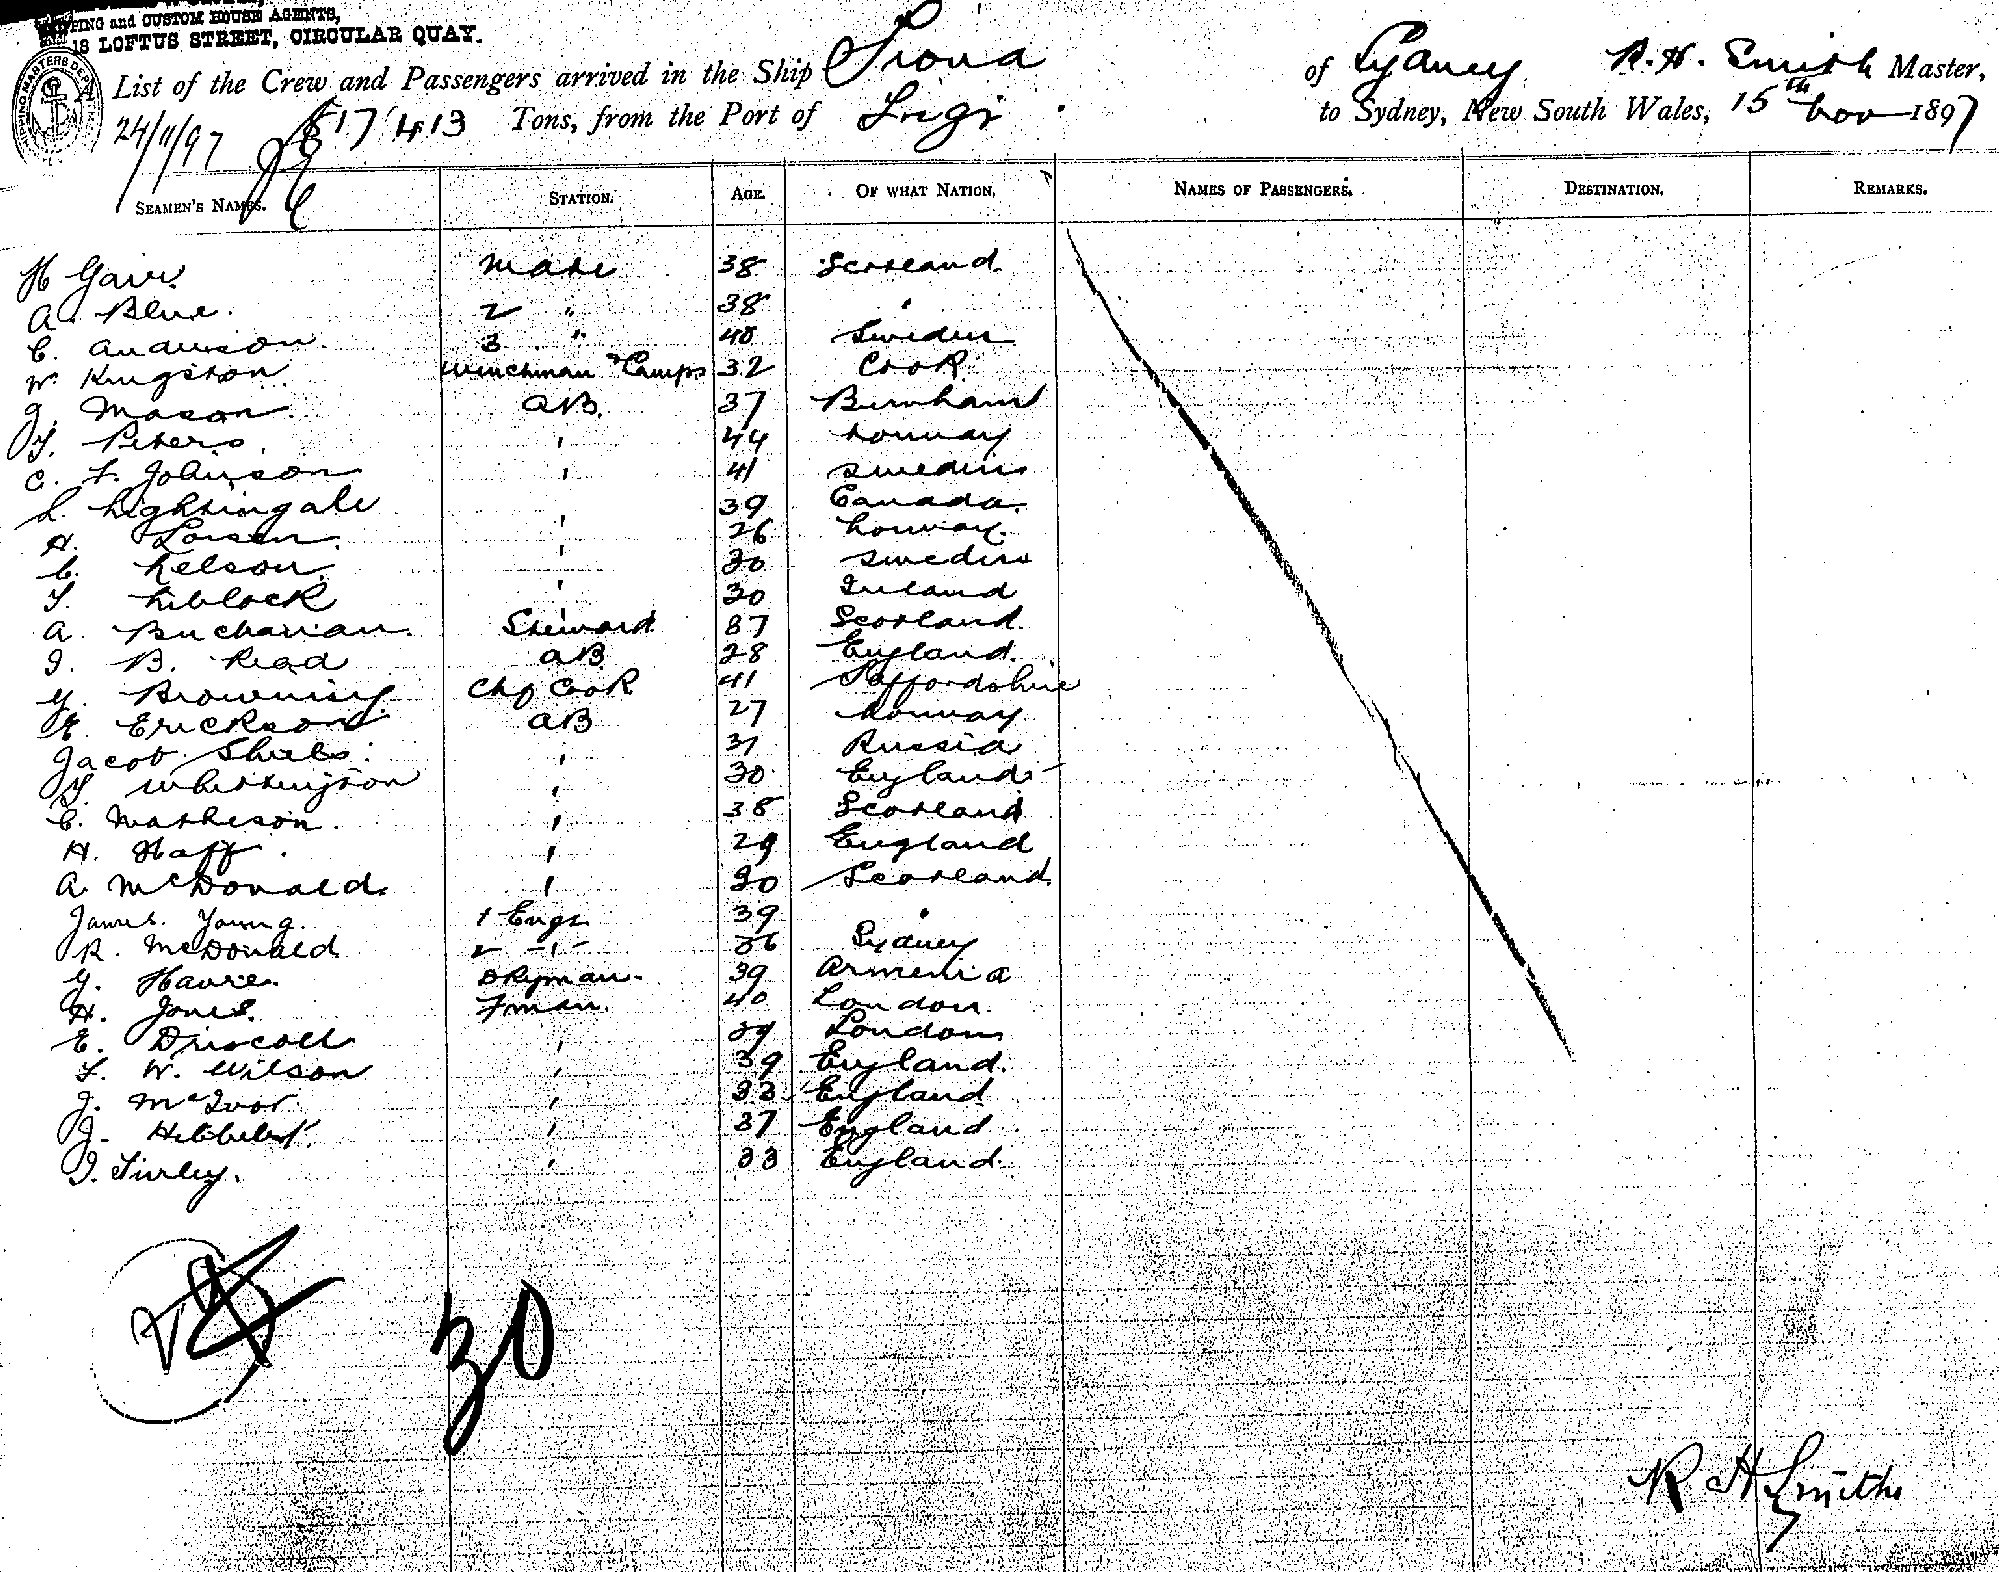 SHIPPING and CUSTOM HOUSE AGENTS,
18 LOFTUS STREET, CIRCULAR QUAY.
List of the Crew and Passengers arrived in the Ship Fiona of Sydney R. H. Smith Master,
24/11/97 413 Tons, from the Port of to Sydney, New South Wales, 15th Nov 1897
SEAMEN'S NAMES. STATION. AGE. OF WHAT NATION. NAMES OF PASSENGERS. DESTINATION. REMARKS.
H Gair Mate 38 Scotland
A. Blue. 2 " 38 "
C. Anderson. 3 " 40 Sweden
W. Kingston. Winchman & Lamps 32 Cook
J. Mason. AB. 37 Burnham
T. Peters. " 44 Norway
C. F. Johnson " 41 Sweden
L. Nightingale " 39 Canada.
H. Larsen. " 26 Norway.
C. Nelson. " 30 Sweden
T. Niblock " 30 Ireland
A. Buchanan. Steward 37 Scotland
J. B. Read AB 28 England.
G. Browning Chf Cook 41 Staffordshire
E. Erickson AB 27 Norway
Jacob Shiels. " 31 Russia
T. Whittington " 30 England
C. Matheson. " 38 Scotland
H. Haff. " 29 England
A. McDonald. " 30 Scotland.
James. Young. 1 Engr. 39 "
R. McDonald 2 -"- 36 Sydney
G. Havre. Dkyman. 39 Armenia
H. Jones. Fman. 40 London.
E. Driscoll " 39 London
T. W. Wilson " 39 England.
J. McIvor. " 33 England
J. Hibbert. " 37 England
J. Turley. " 33 England.
30
R H Smith